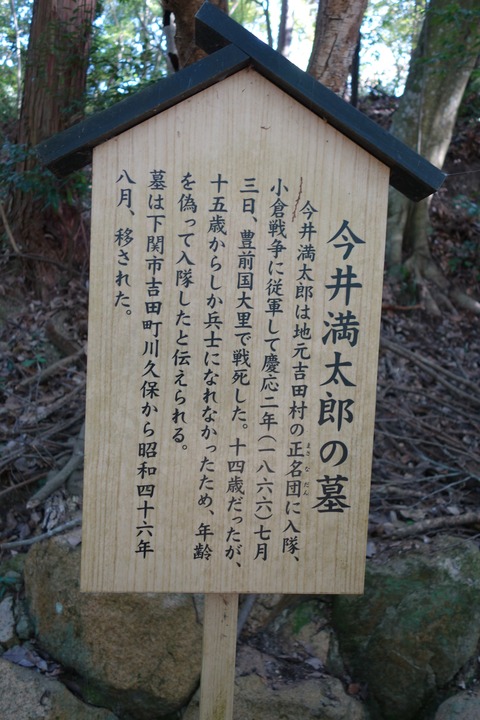 今井満太郎の墓
今井満太郎は地元吉田村の正名団に入隊、
まさなだん
小倉戦争に従軍して慶応二年(一八六六)七月
三日、豊前国大里で戦死した。十四歳だったが、
十五歳からしか兵士になれなかったため、年齢
を偽って入隊したと伝えられる。
墓は下関市吉田町川久保から昭和四十六年
八月、移された。